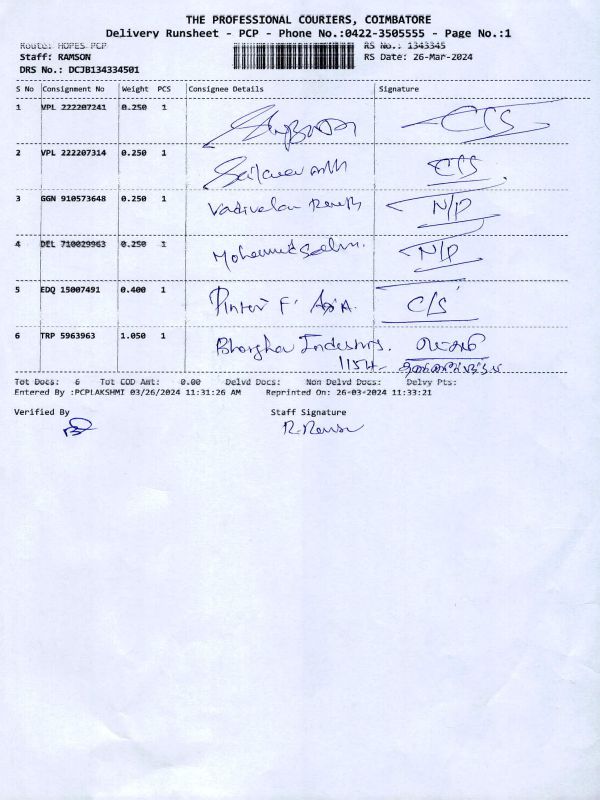 THE PROFESSIONAL COURIERS, COIMBATORE
Delivery Runsheet - PCP - Phone No.:0422-3505555 - Page No.:1
Route: HOPES PCP RS No.: 1343345
Staff: RAMSON RS Date: 26-Mar-2024
DRS No.: DCJB134334501
S No Consignment No Weight PCS Consignee Details Signature
1 VPL 222207241 0.250 1 C/S
2 VPL 222207314 0.250 1 C/S
3 GGN 910573648 0.250 1 Vadivelan N/P
4 DEL 710029963 0.250 1 Mohamed N/P
5 EDQ 15007491 0.400 1 C/S
6 TRP 5963963 1.050 1
1154
Tot Docs: 6 Tot COD Amt: 0.00 Delvd Docs: Non Delvd Docs: Delvy Pts:
Entered By :PCPLAKSHMI 03/26/2024 11:31:26 AM Reprinted On: 26-03-2024 11:33:21
Verified By Staff Signature